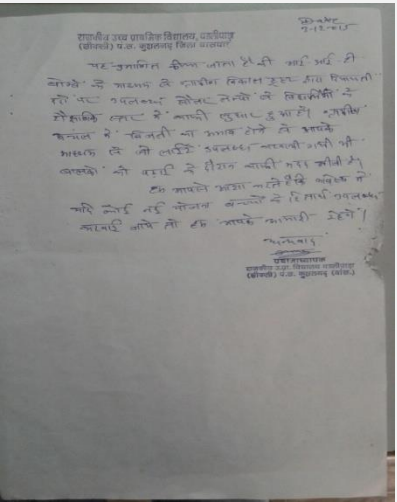 Date
7-12-015
राजकीय उच्च प्राथमिक विद्यालय,
पं.स. कुशलगढ़ जिला बांसवाड़ा
यह प्रमाणित किया जाता है की आई आई टी
बोम्बे के माध्यम से ग्रामीण विकास ट्रस्ट द्वारा रियायती
दरों पर उपलब्ध सोलर लेम्पों से विद्यार्थियों के
शैक्षणिक स्तर में काफी सुधार हुआ है। ग्रामीण
अंचल में बिजली का अभाव होने से आपके
माध्यम से जो लाईटे उपलब्ध करवायी गयी थी
बालकों को पढ़ाई के दौरान काफी मदद मीली है।
हम आपसे आशा करते है कि भविष्य में
यदि कोई नई योजना बच्चों के हितार्थ उपलब्ध
करवाई जाये तो हम आपके आभारी रहेंगे।
धन्यवाद
प्रधानाध्यापक
राजकीय उ.प्रा. विद्यालय
पं.स. कुशलगढ़ (बांस.)